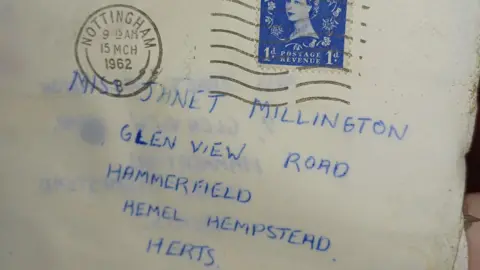 NOTTINGHAM
9-AM
15 MCH
1962
1D. POSTAGE REVENUE 1D.
MISS JANET MILLINGTON
GLEN VIEW ROAD
HAMMERFIELD
HEMEL HEMPSTEAD.
HERTS.